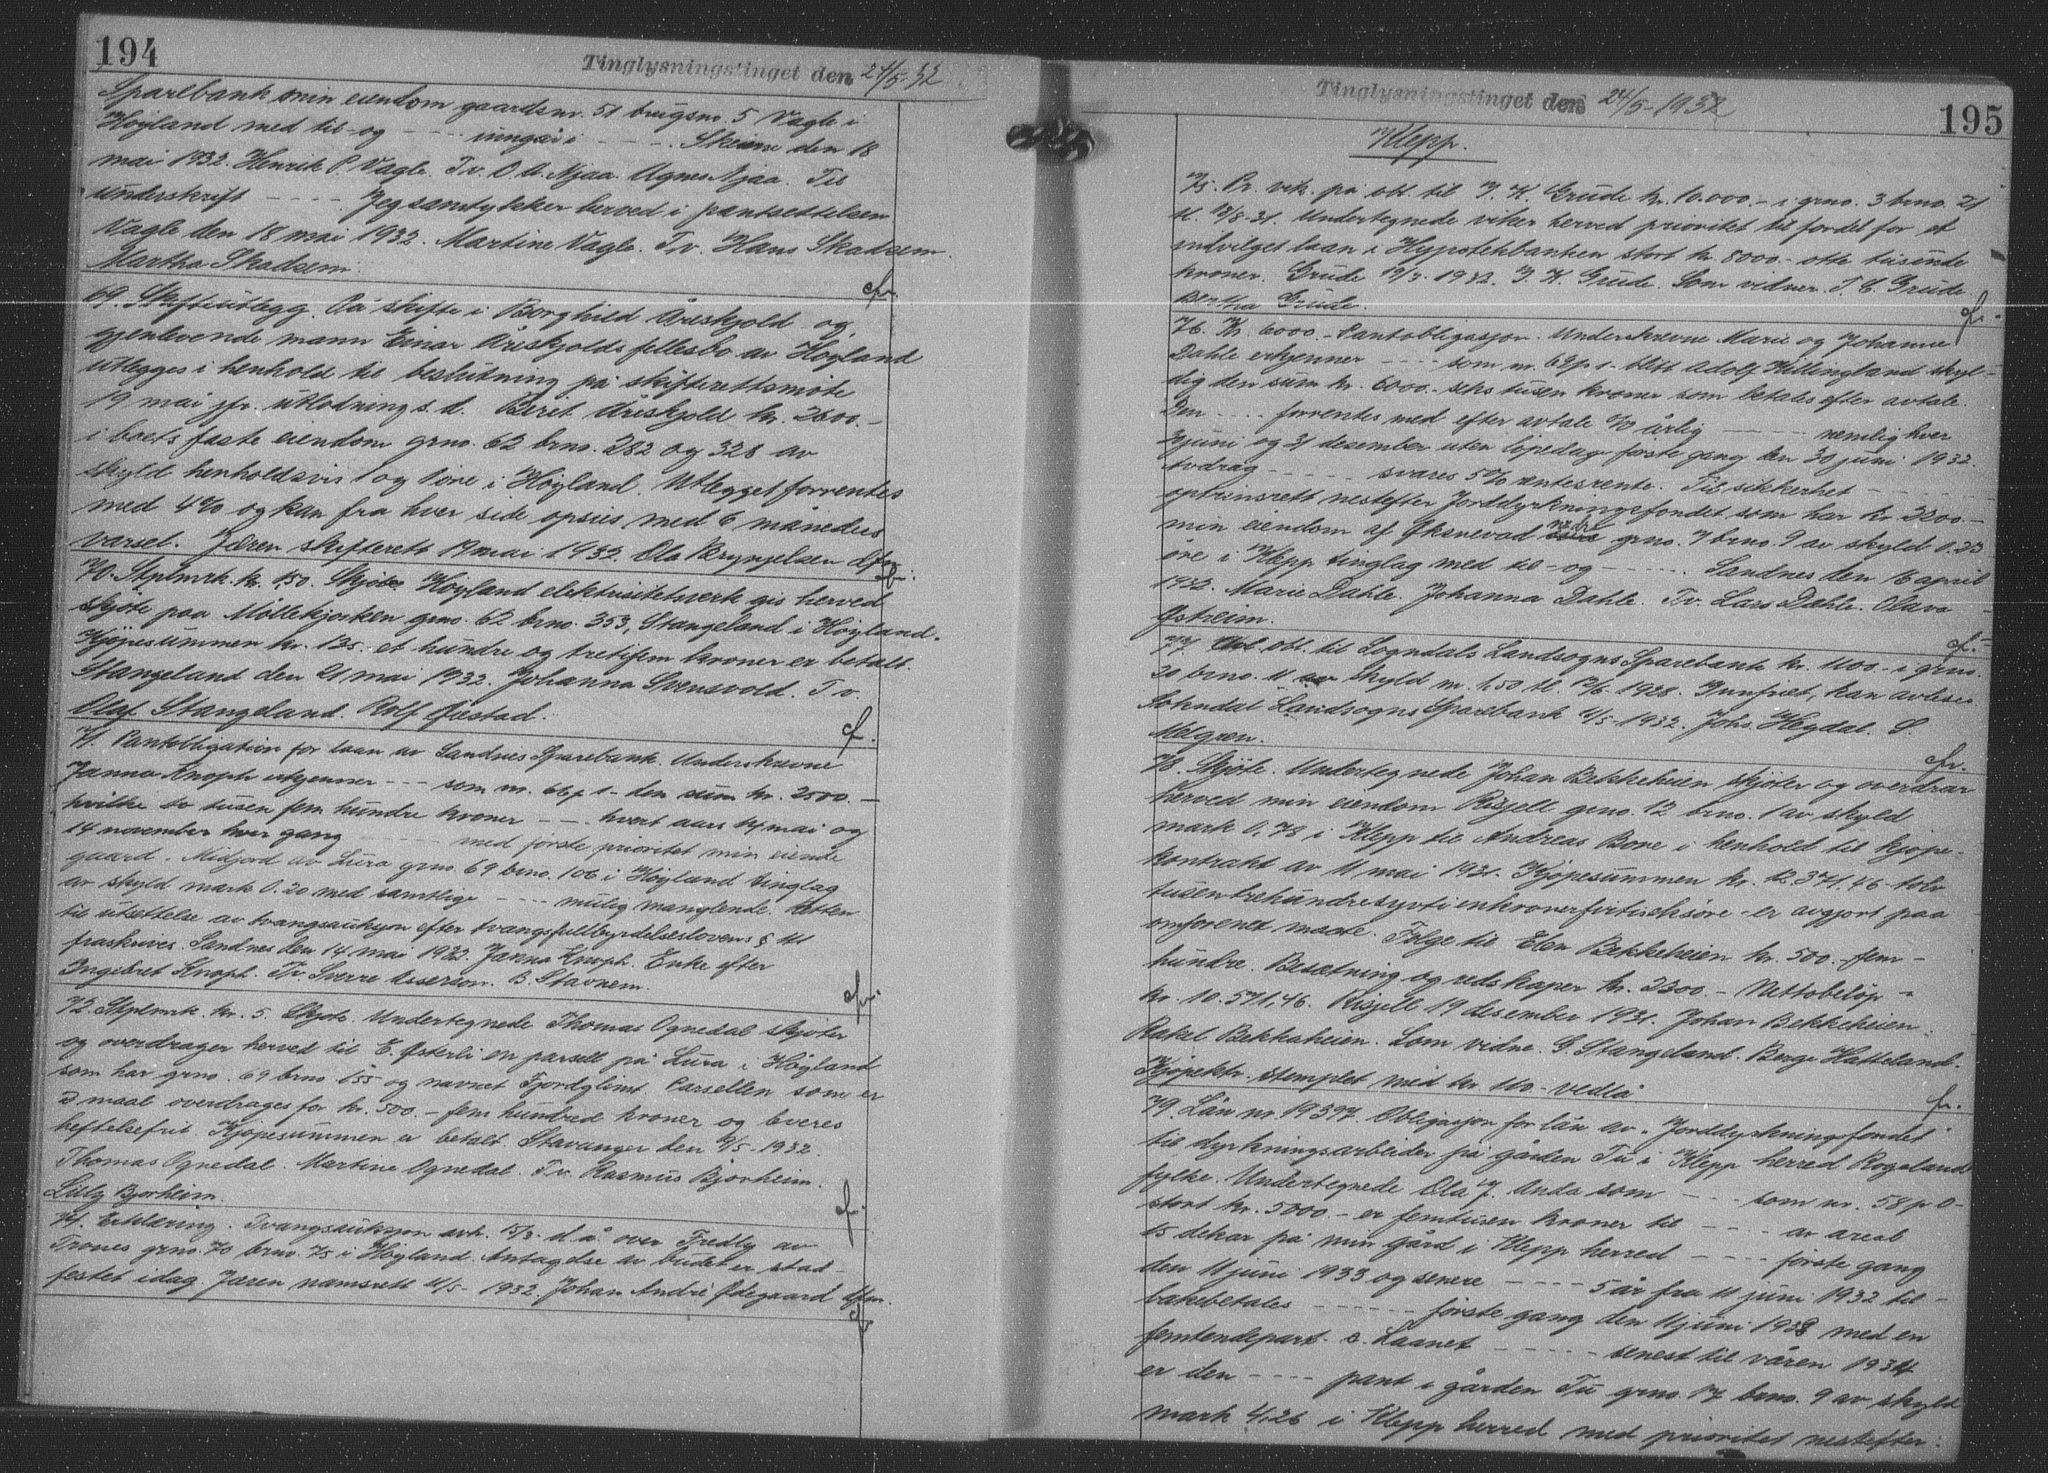 194
Tinglysningstinget den 24/5-32
Sparebank min eiendom gaardsnr. 51 brugsnr. 5 Vagle i
Høyland med til- og - - - - inngår i - - - - . Skeiene den 18
mai 1932. Henrik P. Vagle. Tv. O. A. Njaa. Agnes Njaa. Til
underskrift - - - - . Jeg samtykker herved i pantsettelsen
Vagle den 18 mai 1932. Martine Vagle. Tv. Hans Skadsem.
Martha Skadsem.
69. Skifteutlegg. På skifte i Borghild Åreskjold og
gjenlevende mann Einar Åreskjolds fellesbo av Høyland
utlegges i henhold til beslutning på skifterettsmøte
19 mai jfr. utlodning s.d. Beret Åreskjold kr. 2600.-
i boets faste eiendom grno. 62 brno. 282 og 328 av
skyld henholdsvis 1 og 1 øre i Høyland. Utlegget forrentes
med 4% og kan fra hver side opsies med 6 måneders
varsel. Jæren skifterett 19 mai 1932. Ola Bryngelsen dfm.
70. Stplmrk. kr. 1.50. Skjøte. Høyland elektrisitetsverk gis herved
skjøte paa Møllekjorken grno. 62 brno. 353, Stangeland i Høyland.
Kjøpesummen kr. 135. et hundre og trettifem kroner er betalt.
Stangeland den 21 mai 1932. Johanna Svensvold. Tv.
Olaf Stangeland. Rolf
71. Pantobligation for laan av Sandnes Sparebank. Underskrevne
Janna Knoph erkjenner - - - som nr. 66 p 1 - den sum kr. 2500.-
hvilke to tusen fem hundre kroner - - - hvert aars 14 mai og
14 november hver gang - - - - med første prioritet min eiende
gaard. Midjord av Lura grno 69 brno. 106 i Høyland tinglag
av skyld mark 0.20 med samtlige - - - - mulig manglende. Retten
til utsettelse av tvangsauksjon efter tvangsfullbyrdelseslovens §
fraskrives. Sandnes den 14. mai 1932. Janna Knoph. Enke efter
Ingebret Knoph. Tv. Sverre Aserson. B. Stavnem.
72. Stplmrk. kr. 5. Skjøte. Undertegnede Thomas Ognedal skjøter
og overdrager herved til E. Østerli en parsell på Lura i Høyland
som har grno. 69 brno 155 og navnet Fjordglimt. Parsellen som er
2 maal overdrages for kr. 500.- fem hundred kroner og leveres
heftelsefrit. Kjøpesummen er betalt. Stavanger den /5-1932.
Thomas Ognedal. Martine Ognedal. Tv. Rasmus Bjorheim.
Lilly Bjorheim.
74. Erklæring. Tvangsauksjon avh. 15/3 d.å. over Fredly av
Trones grno. 70 brno. 75 i Høyland. Antagelse av budet er stad-
festet idag. Jæren namsrett /5-1932. Johan André Ødegaard dfm.
Tinglysningstinget den 24/5-1932
195
Klepp.
75. Pr. vik. på obl. til J. K. Grude kr. 10.000.- i grno. 3 brno. 21
tl. /8-31. Undertegnede viker herved prioritet til fordel for et
indvilget laan i Hypotekbanken stort kr. 8000.- otte tusinde
kroner. Grude 19/3-1932. J. K. Grude. Som vidner. T. C. Grude
Bertha Grude.
76. Kr. 6000.- Pantobligasjon. Underskrevne Marie og Johanne
Dahle erkjenner - - - - som nr. 68 p 1 - blitt Adolf Killingland skyl-
dig den sum kr. 6000.- seks tusen kroner som betales efter avtale.
Den - - - - forrentes med efter avtale % årlig - - - - nemlig hver
30 juni og 31 desember uten løpedag første gang den 30 juni 1932.
Avdrag - - - - svares 5% rentesrente. Til sikkerhet - - - -
optrinsrett nestefter Jorddyrkningsfondet som har kr 2200.-
min eiendom af Øksnevad grno. 7 brno. 9 av skyld 0.23
øre i Klepp tinglag med til- og - - - - . Sandnes den 16 april
1932. Marie Dahle. Johanna Dahle. Tv. Lars Dahle. Olava
Østreim.
77. obl. til Sogndals Landsogns Sparebank kr. 1100.- i grno.
20 brno. 11 av skyld m. 1.50 tl. /6-1928. Innfriet, kan avlises
Sokndal Landsogns Sparebank /5-1932. Johs. Hegdal. S.
Melgren.
78. Skjøte. Undertegnede Johan Bekkeheien skjøter og overdrar
herved min eiendom Risjell grno. 12 brno. 1 av skyld
mark 0.78 i Klepp til Andreas Bore i henhold til kjøpe-
kontrakt av 11 mai 1931. Kjøpesummen kr. 12.371.46 tolv
tusen trehundresyttienkronerførtiseksøre - er avgjort paa
omforenet maate. Følge til Elen Bekkeheien kr. 500.- fem-
hundre. Besætning og redskaper kr. 2300.- Nettobeløp -
kr. 10.571.46. Risjell 19 desember 1931. Johan Bekkeheien.
Rakel Bekkaheien. Som vidne. G. Stangeland. Berge Hatteland.
Kjøpektr. stemplet med kr 110.- vedlå.
79. Lån nr. 19397. Obligasjon for lån av "Jorddyrkningsfondet"
til dyrkningsarbeider på gården Tu i Klepp herred Rogaland
fylke. Undertegnede Ola J. Anda som - - - - som nr. 58 p 0-
stort kr. 5000.- er femtusen kroner til - - - - av areal
15 dekar på min gård i Klepp herred - - - - første gang
den 11 juni 1933 og senere - - - - 5 år fra 11 juni 1932 til-
bakebetales - - - - første gang den 11 juni 1938 med en
femtendepart. 2. Laanet - - - - senest til våren 1934
er den - - - - pant i gården Tu grno. 17 brno. 9 av skyld
mark 4.26 i Klepp herred med prioritet nestefter: